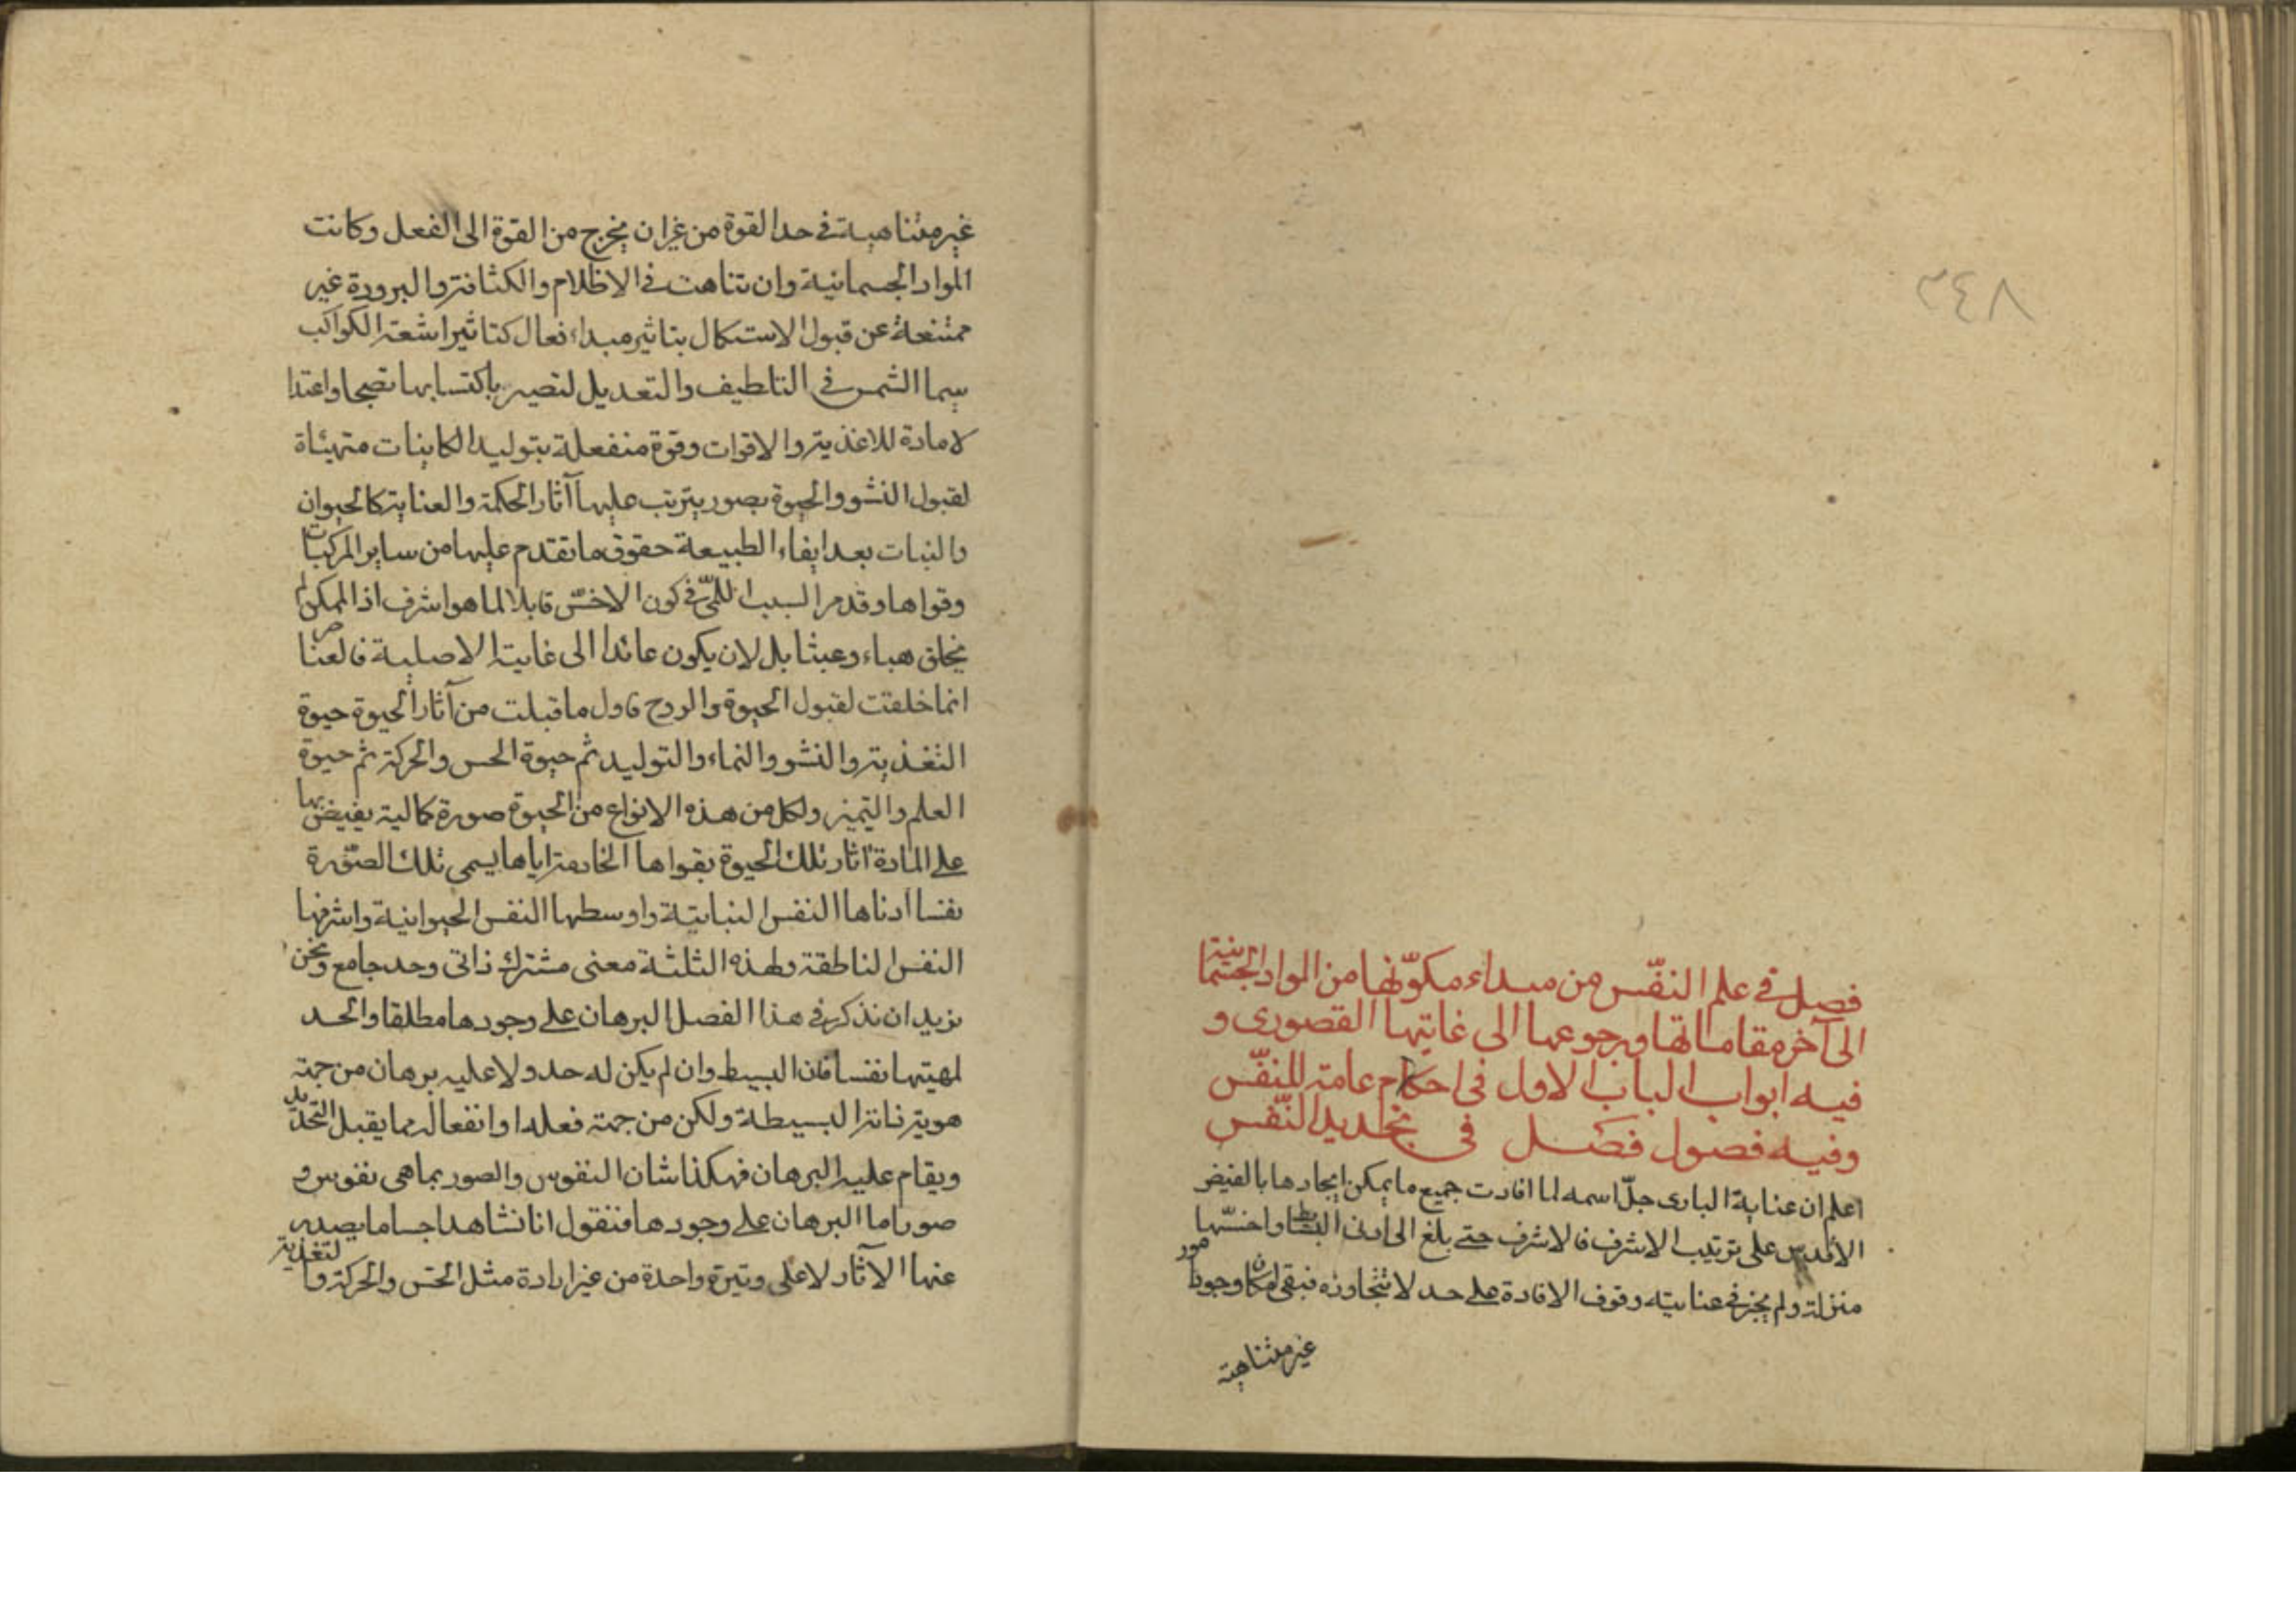 ٨٤٢
فصل في علم النفس من مبداء مكوّنها من المواد الجسمانية
الى آخر مقاماتها ورجوعها الى غايتها القصوى و
فيه ابواب الباب الاول في احكام عامة للنفس
وفيه فصول فصل في تحديد النفس
اعلم ان عناية البارى جلّ اسمه لما افادت جميع ما يمكن ايجادها بالفيض
الاقدس على ترتيب الاشرف فالاشرف حتى بلغ الى ادنى البسائط واخسّها
منزلة ولم يجز في عنايته وقوف الافادة على حد لا تتجاوزه فبقى امكان وجود امور
غير متناهية
غير متناهية في حد القوة من غير ان يخرج من القوة الى الفعل وكانت
المواد الجسمانية وان تناهت في الاظلام والكثافة والبرودة غير
ممتنعة عن قبول الاستكمال بتاثير مبداء فعال كتاثير اشعة الكواكب
سيما الشمس في التلطيف والتعديل لتصير باكتسابها نضجا واعتدا
لا مادة للاغذية والاقوات وقوة منفعلة بتوليد الكاينات متهيئاة
لقبول النشو والحيوة بصور يترتب عليها آثار الحكمة والعناية كالحيوان
والنبات بعد ايفاء الطبيعة حقوق ما تقدم عليها من ساير المركبات
وقواها وقد مر السبب اللمّى في كون الاخسّ قابلا لما هو اشرف اذ الممكن لم
يخلق هباء وعبثا بل لان يكون عائدا الى غايته الاصلية فالعناصر
انما خلقت لقبول الحيوة والروح فاول ما قبلت من آثار الحيوة حيوة
التغذية والنشو والنماء والتوليد ثم حيوة الحس والحركة ثم حيوة
العلم والتميز ولكل من هذه الانواع من الحيوة صورة كمالية يفيض بها
على المادة آثار تلك الحيوة بقواها الخادمة اياها يسمى تلك الصّورة
نفسا ادناها النفس النباتية واوسطها النفس الحيوانية واشرفها
النفس الناطقة ولهذه الثلثة معنى مشترك ذاتى وحد جامع ونحن
نريد ان نذكر في هذا الفصل البرهان على وجودها مطلقا والحد
لمهيتها نفسا فان البسيط وان لم يكن له حد ولا عليه برهان من جهة
هوية ذاته البسيطة ولكن من جهة فعله او انفعاله مما يقبل التحديد
ويقام عليه البرهان فهكذا شان النفوس والصور بما هى نفوس و
صور اما البرهان على وجودها فنقول انا نشاهد اجساما يصدر
عنها الآثار لا على وتيرة واحدة من غير ارادة مثل الحس والحركة والتغذية